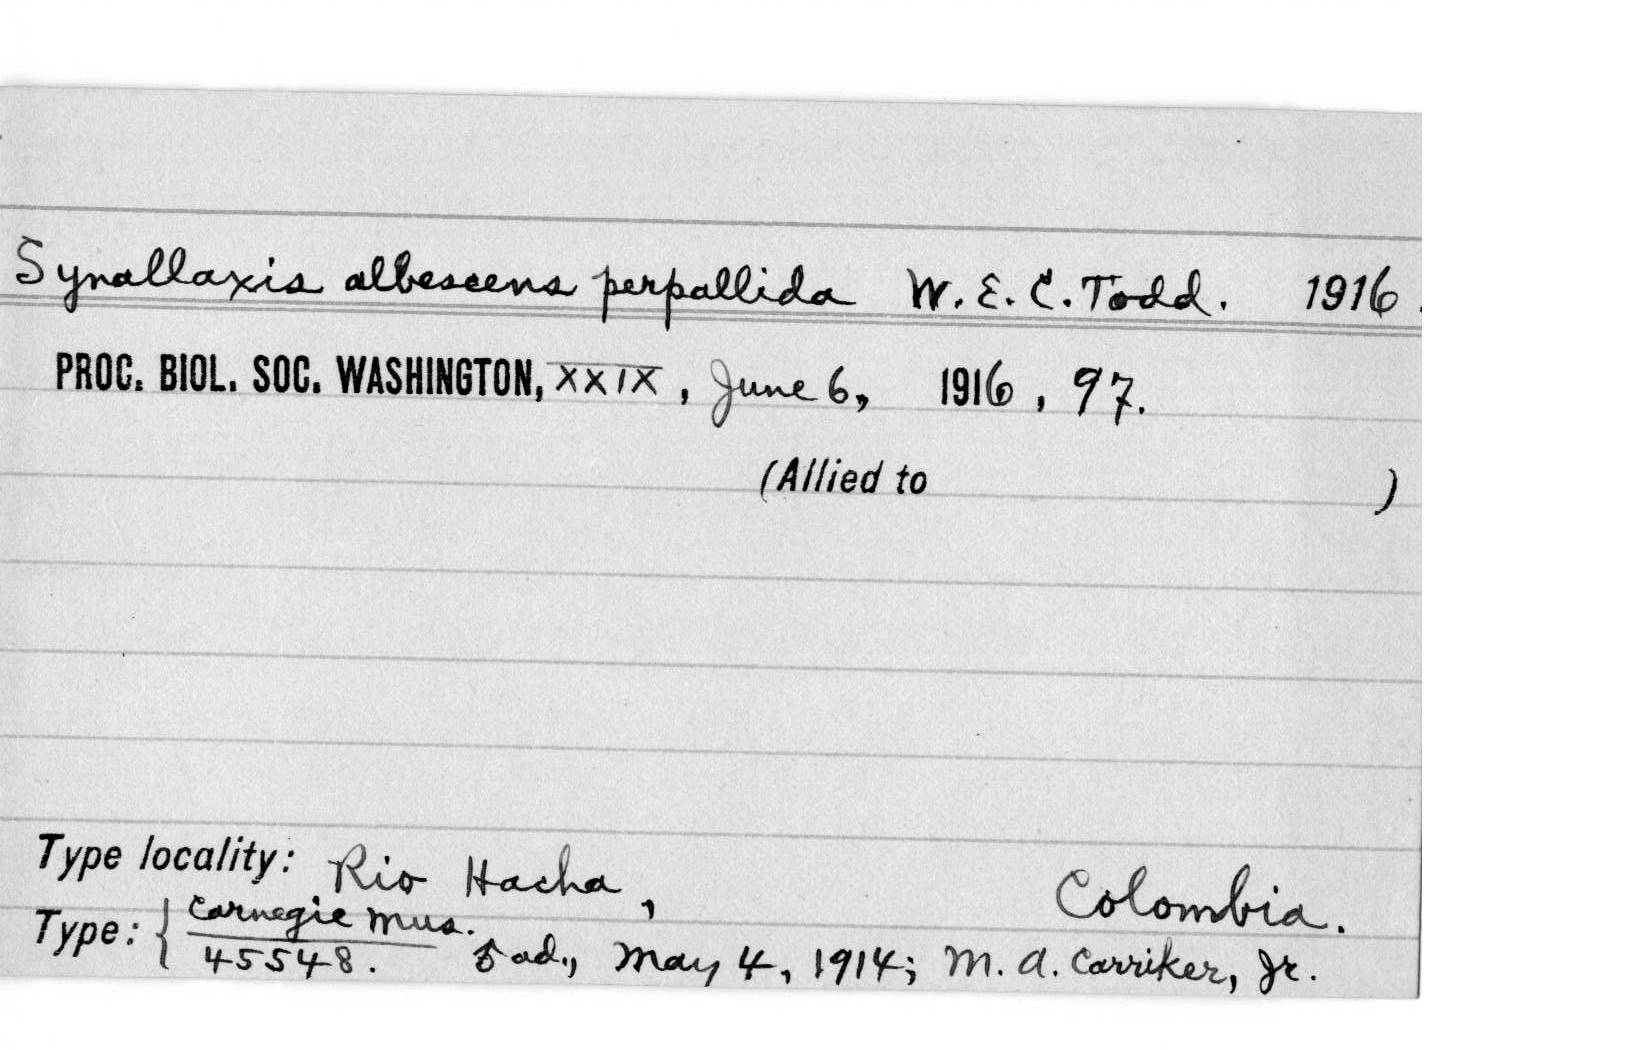 Synallaxis albescens perpallida W. E. C. Todd. 1916.
PROC. BIOL. SOC. WASHINGTON, XXIX, June 6, 1916, 97.
(Allied to )
Type locality: Rio Hacha, Colombia.
Type: { Carnegie Mus.
45548. ad., May 4, 1914; M. A. Carriker, Jr.